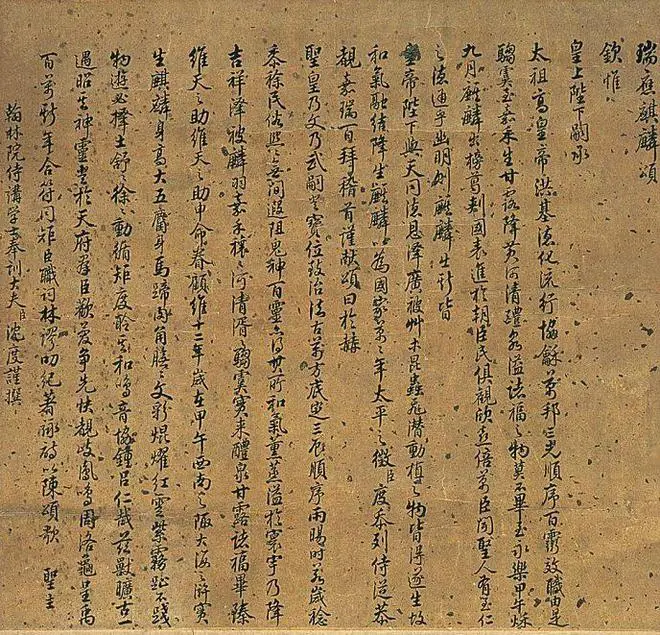 瑞應麒麟頌
欽惟
皇上陛下嗣承
太祖高皇帝洪基德化流行協龢萬邦三光順序百靈效職由是
騶虞至嘉禾生甘露降黃河清醴泉溢諸福之物莫不畢至永樂甲午秋
九月麒麟出榜葛剌國表進於朝臣民俱觀欣喜倍萬臣聞聖人有至仁
之德通乎幽明則麒麟生斯皆
皇帝陛下與天同德恩澤廣被艸木昆蟲飛潛動植之物皆得遂生故
和氣融結降生麒麟以為國家萬萬年太平之徵臣度忝列侍從恭
覩嘉瑞百拜稽首謹獻頌曰於赫
聖皇乃文乃武嗣登寶位致治法古萬方底定三辰順序雨暘時若歲稔
黍稌民俗熙熙無間遐阻鬼神百靈亦得其所和氣薰蒸溢於寰宇乃降
吉祥澤被麟羽嘉禾穰穰河清湑湑騶虞寔來醴泉甘露諸福畢臻
維天之助維天之助申命眷顧維十二年歲在甲午西南之陬大海之滸實
生麒麟身高丈五麕身馬蹄肉角膴膴文彩焜燿紅雲紫霧趾不踐
物遊必擇土舒舒徐徐動循矩度聆其和鳴音協鐘呂仁哉茲獸曠古一
遇昭其神靈登於天府群臣歡慶爭先快覩岐鳳鳴周洛龜呈禹
百萬斯年合符同矩臣職詞林謬叨紀著詠詩以陳頌歌 聖主
翰林院侍講學士奉訓大夫臣沈度謹撰